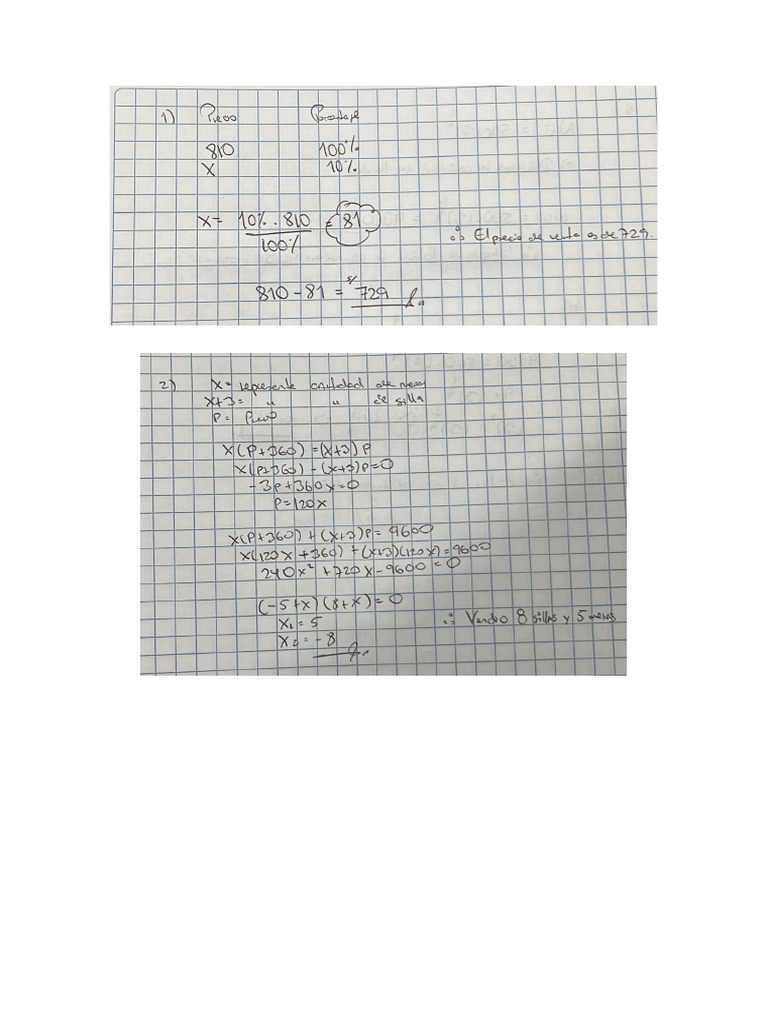 1) Precio Porcentaje
810 100%
X 10%
X = 10% . 810 / 100% = 81
∴ El precio de venta es de 729.
810 - 81 = s/ 729
2) X = represente cantidad de mesas
X+3 = " " de silla
P = Precio
X(P+360) = (X+3)P
X(P+360) - (X+3)P = 0
-3P + 360X = 0
P = 120X
X(P+360) + (X+3)P = 9600
X(120X + 360) + (X+3)(120X) = 9600
240X² + 720X - 9600 = 0
(-5+X)(8+X) = 0
X₁ = 5
∴ Vendio 8 sillas y 5 mesas
X₂ = -8